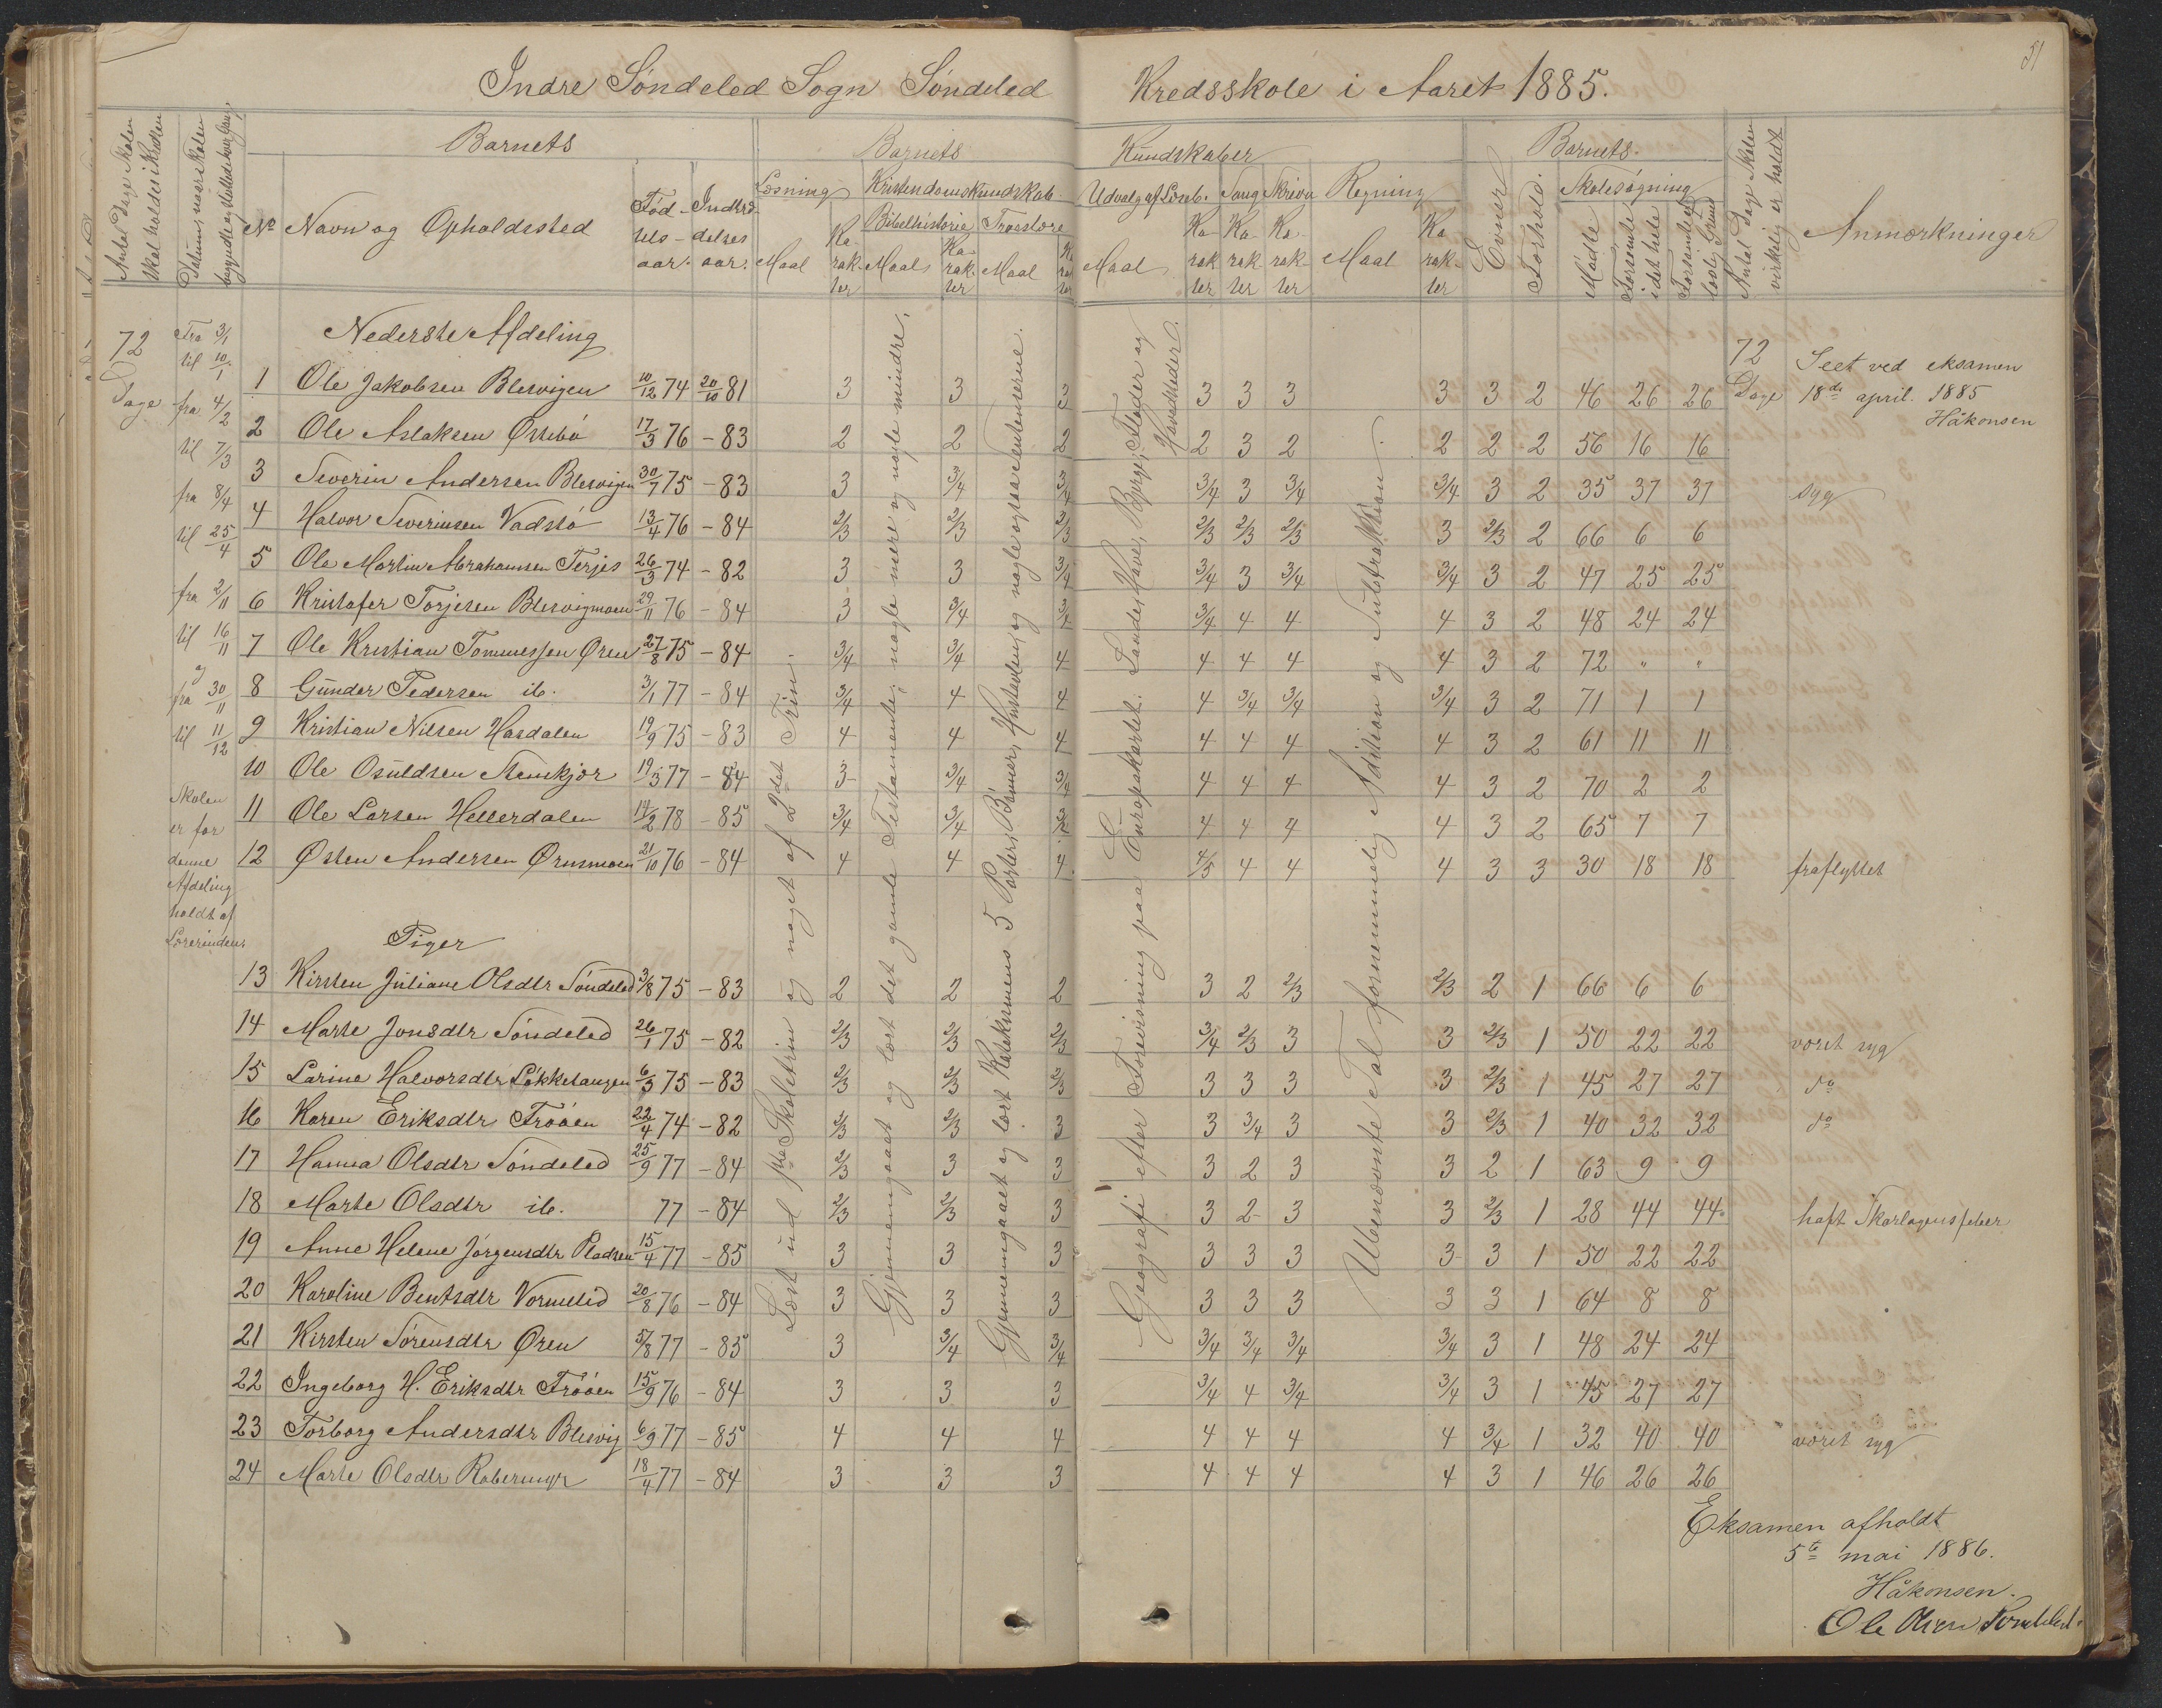 51
Indre Søndeled Sogn Søndeled Kredsskole i Aaret 1885.
Antal Dage Skolen skal holdes i Kredsen
Datum, naar Skolen begyndte og sluttede hver Gang.
Barnets
No Navn og Opholdssted
Fødselsaar. Indtrædelsesaar.
Barnets Kundskaber
Læsning
Maal Karakter
Kristendomskundskab.
Bibelhistorie Troeslære
Maal Karakter Maal Karakter
Udvalg af Læseb. Sang Skrivn Regning
Maal Karakter Karakter Karakter Maal Karakter
Barnets.
Evner Forhold.
Skolesøgning
Mødte Forsømte i det hele Forsømte af lovlig Grund
Antal Dage Skolen virkelig er holdt
Anmærkninger
72 Dage
Fra 3/1
til 10/1
fra 4/2
til 7/3
fra 8/4
til 25/4
fra 2/11
til 16/11
og
fra 30/11
til 11/12
Skolen
er for
denne
Afdeling
holdt af
Lærerinden.
Læst ud 1ste Skoletrin og noget af 2det Trin.
Gjennemgaaet og lært det gamle Testamente; nogle mere og nogle mindre.
Gjennemgaaet og lært Katekismens 5 Parter, Bønner, Hustavlen, og nogle ogsaa Sentenserne.
Geografi efter Forevisning paa Europakartet: Lande, Have, Bjerge, Floder og Hovedstæder.
Ubenævnte Tal fornemmelig Addition og Subtraktion.
Nederste Afdeling
1 Ole Jakobsen Blesvigen 10/12 74 20/10 81 3 3 3 3 3 3 3 3 2 46 26 26 72 Dage Seet ved eksamen
18de april. 1885
Håkonsen
2 Ole Aslaksen Østebø 17/3 76 - 83 2 2 2 2 3 2 2 2 2 56 16 16
3 Severin Andersen Blesvigen 30/7 75 - 83 3 3/4 3/4 3/4 3 3/4 3/4 3 2 35 37 37 syg
4 Halvor Severinsen Vadstø 13/4 76 - 84 2/3 2/3 2/3 2/3 2/3 2/3 3 2/3 2 66 6 6
5 Ole Martin Abrahamsen Terjes 26/3 74 - 82 3 3 3/4 3/4 3 3/4 3/4 3 2 47 25 25
6 Kristofer Torjesen Blesvigmoen 29/11 76 - 84 3 3/4 3/4 3/4 4 4 4 3 2 48 24 24
7 Ole Kristian Tommessen Øren 27/8 75 - 84 3/4 3/4 4 4 4 4 4 3 2 72 " "
8 Gunder Pedersen ib. 3/1 77 - 84 3/4 4 4 4 3/4 3/4 3/4 3 2 71 1 1
9 Kristian Nilsen Hasdalen 19/9 75 - 83 4 4 4 4 4 4 4 3 2 61 11 11
10 Ole Osuldsen Stenskjær 19/3 77 - 84 3 3/4 3/4 4 4 4 4 3 2 70 2 2
11 Ole Larsen Hellerdalen 14/2 78 - 85 3/4 3/4 4 4 4 4 3 2 65 7 7
12 Østen Andersen Ørnsmoen 21/10 76 - 84 4 4 4 4/5 4 4 4 3 3 30 18 18 fraflyttet
Piger
13 Kirsten Juliane Olsdtr Søndeled 3/8 75 - 83 2 2 2 3 2 2/3 2/3 2 1 66 6 6
14 Marte Jonsdtr Søndeled 26/1 75 - 82 2/3 2/3 2/3 3/4 2/3 3 3 2/3 1 50 22 22 været syg
15 Larine Halvorsdtr Løkketangen 6/3 75 - 83 2/3 2/3 2/3 3 3 3 3 2/3 1 45 27 27 do
16 Karen Eriksdtr Frøøen 22/4 74 - 82 2/3 2/3 3 3 3/4 3 3 2/3 1 40 32 32 do
17 Hanna Olsdtr Søndeled 25/9 77 - 84 2/3 3 3 3 2 3 3 2 1 63 9 9
18 Marte Olsdtr ib. 77 - 84 2/3 2/3 3 3 2 3 3 2/3 1 28 44 44 haft Skarlagensfeber
19 Anne Helene Jørgensdtr Pladsen 15/4 77 - 85 3 3 3 3 3 3 3 3 1 50 22 22
20 Karoline Bentsdtr Vormelid 20/8 76 - 84 3 3 3 3 3 3 3 3 1 64 8 8
21 Kirsten Sørensdtr Øren 5/8 77 - 85 3 3/4 3/4 3/4 3/4 3/4 3/4 3 1 48 24 24
22 Ingeborg H. Eriksdtr Frøøen 15/9 76 - 84 3 3 3 3/4 4 3/4 3/4 3 1 45 27 27
23 Torborg Andersdtr Blesvig 6/9 77 - 85 4 4 4 4 4 4 4 3/4 1 32 40 40 været syg
24 Marte Olsdtr Rabermyr 18/4 77 - 84 3 3 3 4 4 4 4 3 1 46 26 26
Eksamen afholdt
5te mai 1886.
Håkonsen.
Ole Olsen